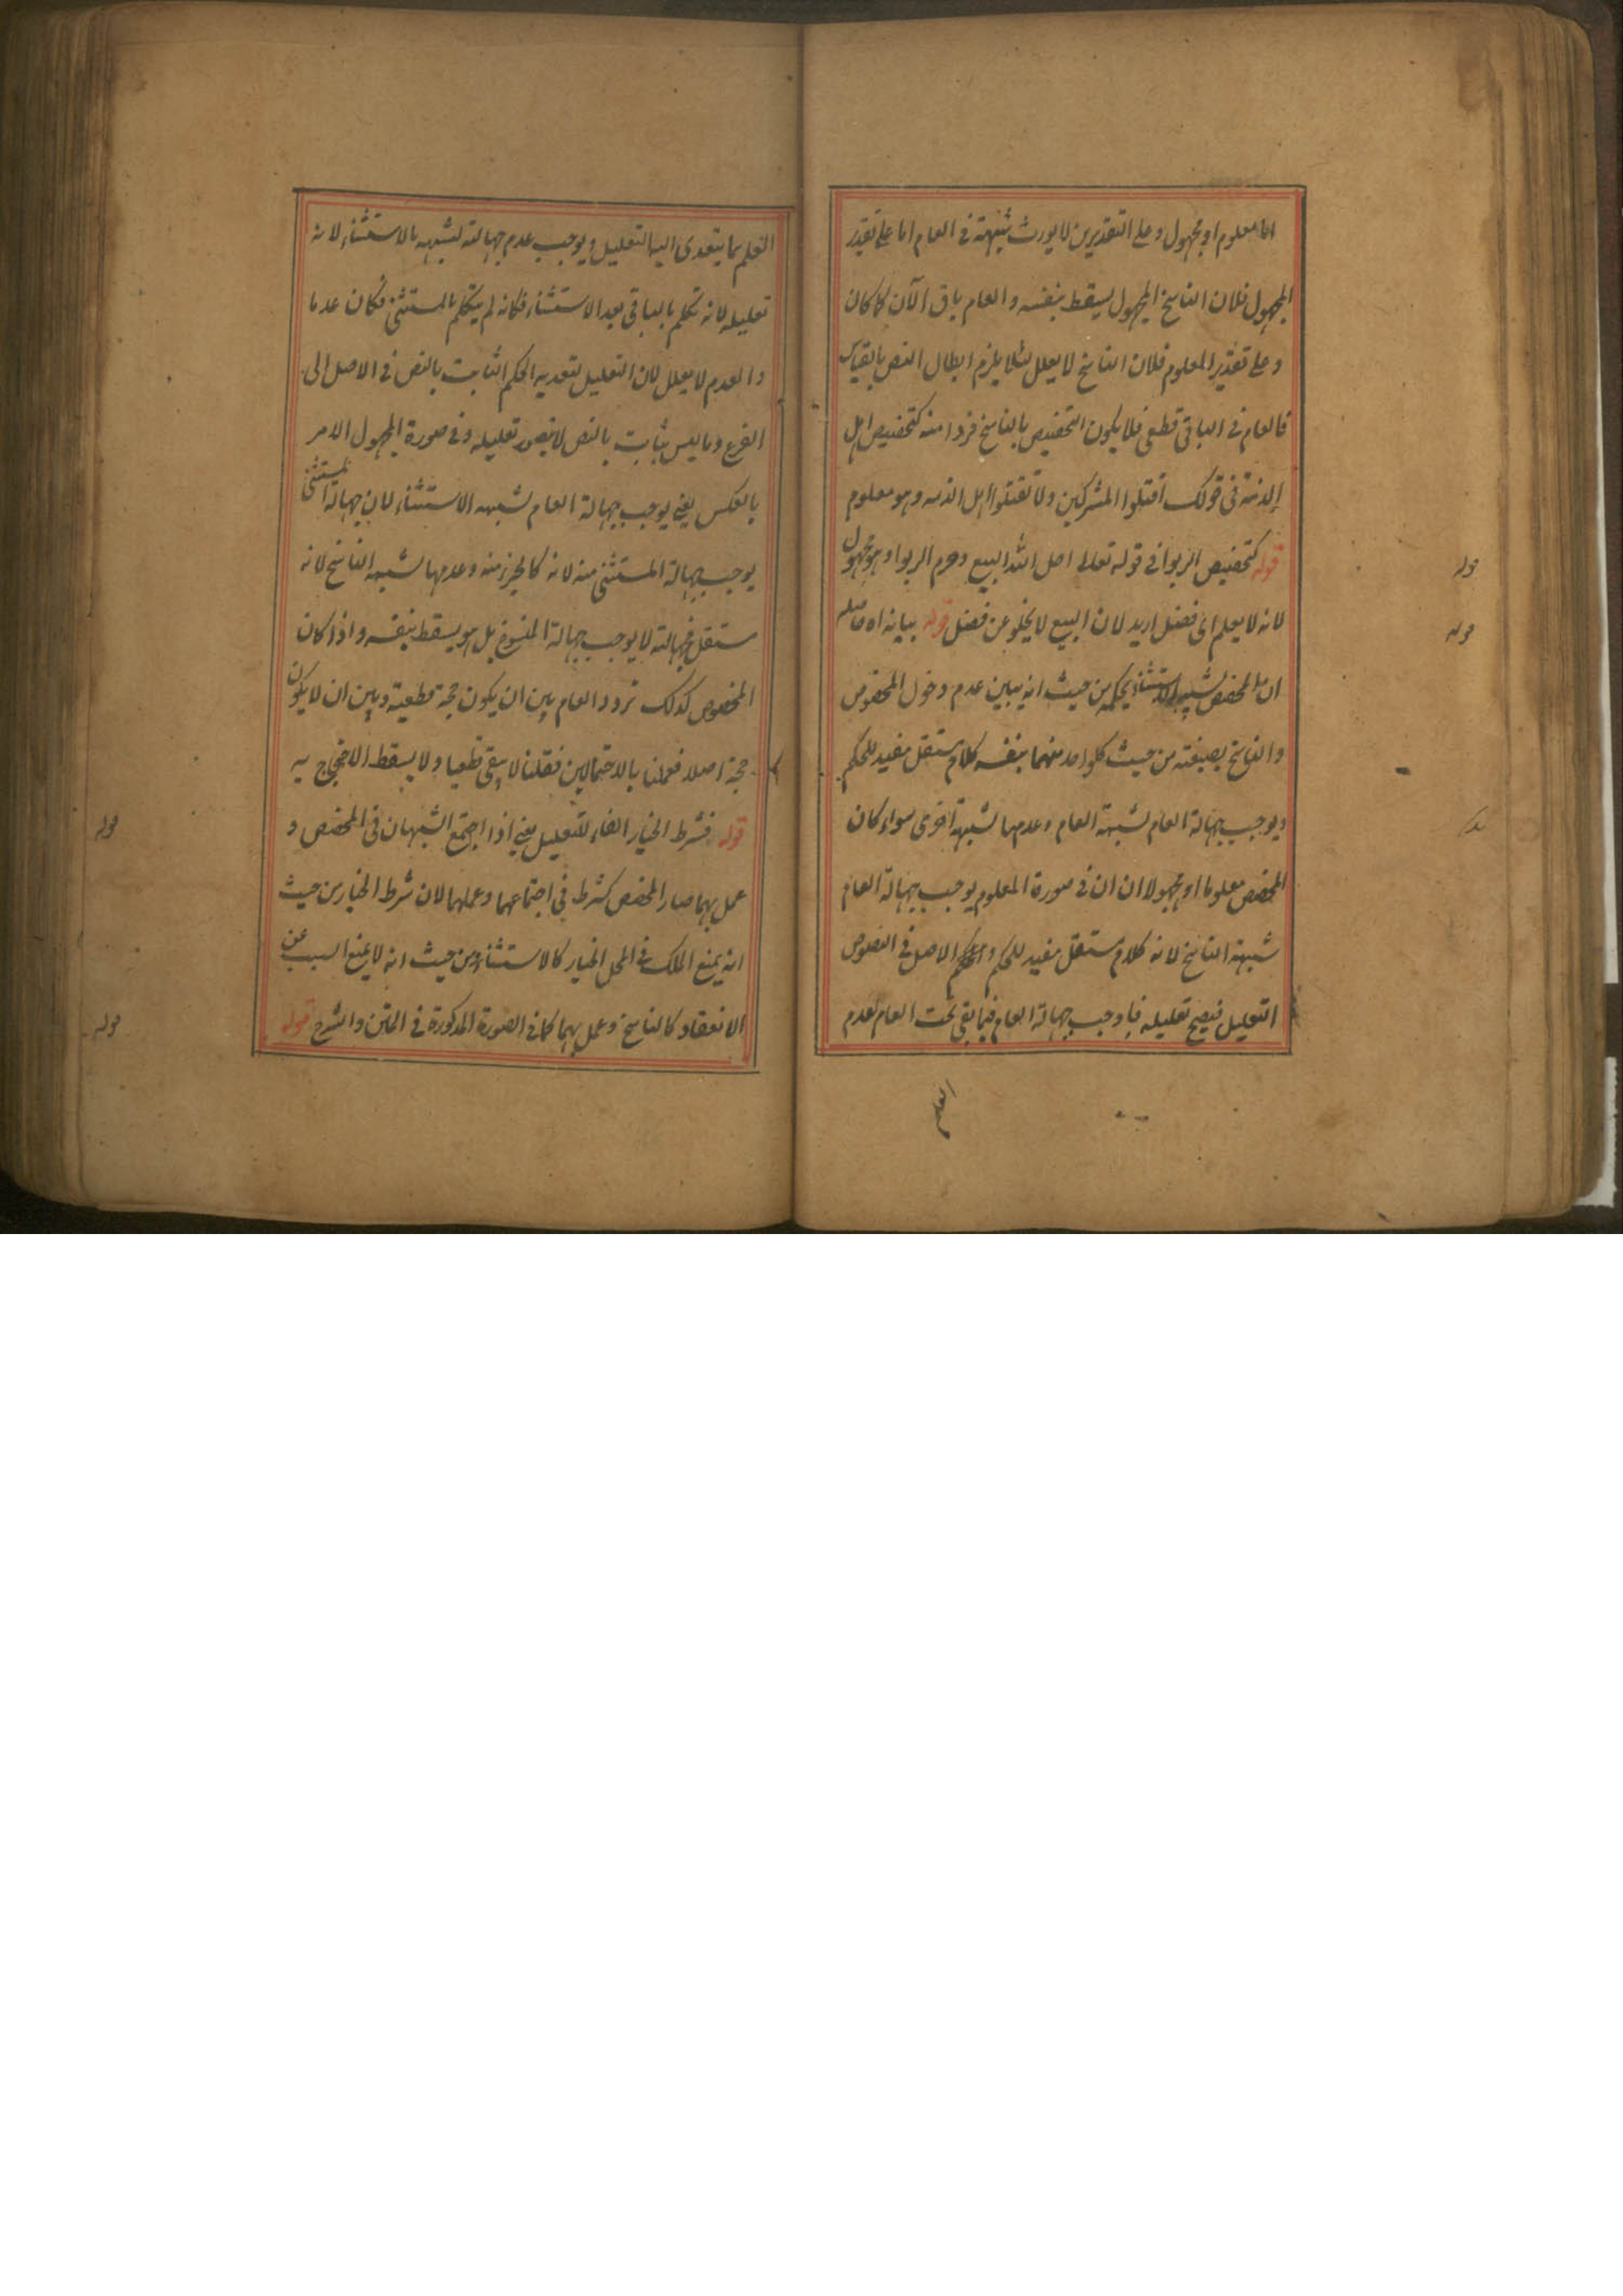 اما معلوم او مجهول وعلى التقديرين لا يورث شبهة في العام اما على تقدير
المجهول فلان الناسخ المجهول يسقط بنفسه والعام باق الآن كما كان
وعلى تقدير المعلوم فلان الناسخ لا يعلل لئلا يلزم ابطال النص بالقياس
فالعام في الباقي قطعي فلا يكون التخصيص بالناسخ فردا منه كتخصيص اهل
الذمة في قولك اقتلوا المشركين ولا تقتلوا اهل الذمه وهو معلوم
قوله كتخصيص الربوا في قوله تعالى احل الله البيع وحرم الربوا وهو مجهول
لانه لا يعلم اي فضل اريد لان البيع لا يخلو عن فضل قوله بيانه اه حاصله
ان المخصص يشبه الاستثناء بحكمه من حيث انه يبين عدم دخول المخصوص
والناسخ بصيغته من حيث كل واحد منهما بنفسه كلام مستقل مفيد للحكم
ويوجب جهالة العام لشبهة العام وعدمها لشبهة اخرى سواء كان
المخصص معلوما او مجهولا ان ان في صورة المعلوم يوجب جهالة العام
شبهة الناسخ لانه كلام مستقل مفيد للحكم والحكم الاصل في النصوص
التعليل فيصح تعليله فاوجب جهالة العام فيما بقي تحت العام لعدم
العلم
قوله
قوله
العلم بما يتعدى اليه التعليل ويوجب عدم جهالته لشبهه بالاستثناء لانه
تعليله لانه تكلم بالباقي بعد الاستثناء فكانه لم يتكلم بالمستثنى فكان عدما
والعدم لا يعلل لان التعليل لتعديه الحكم الثابت بالنص في الاصل الى
الفرع وما ليس بثابت بالنص لا يتصور تعليله وفي صورة المجهول الامر
بالعكس يعني يوجب جهالة العام لشبهه الاستثناء لان جهالة المستثنى
يوجب جهالة المستثنى منه لانه كالجزء منه وعدمها لشبهه الناسخ لانه
مستقل فجهالته لا يوجب جهالة المنسوخ بل هو يسقط بنفسه واذا كان
المخصوص كذلك تردد العام بين ان يكون حجة قطعية وبين ان لا يكون
حجة اصلا فعملنا بالاحتمالين فقلنا لا يبقى قطعيا ولا يسقط الاحتجاج به
قوله فشرط الخيار الفاء للتعليل يعني اذا اجتمع الشبهان في المخصص و
عمل بهما صار المخصص كشرط في اجتماعهما وعملهما لان شرط الخيار من حيث
انه يمنع الملك في المحل الخيار كالاستثناء ومن حيث انه لا يمنع السبب عن
الانعقاد كالناسخ وعمل بهما كما في الصورة المذكورة في المتن والشرح قوله
قوله
قوله